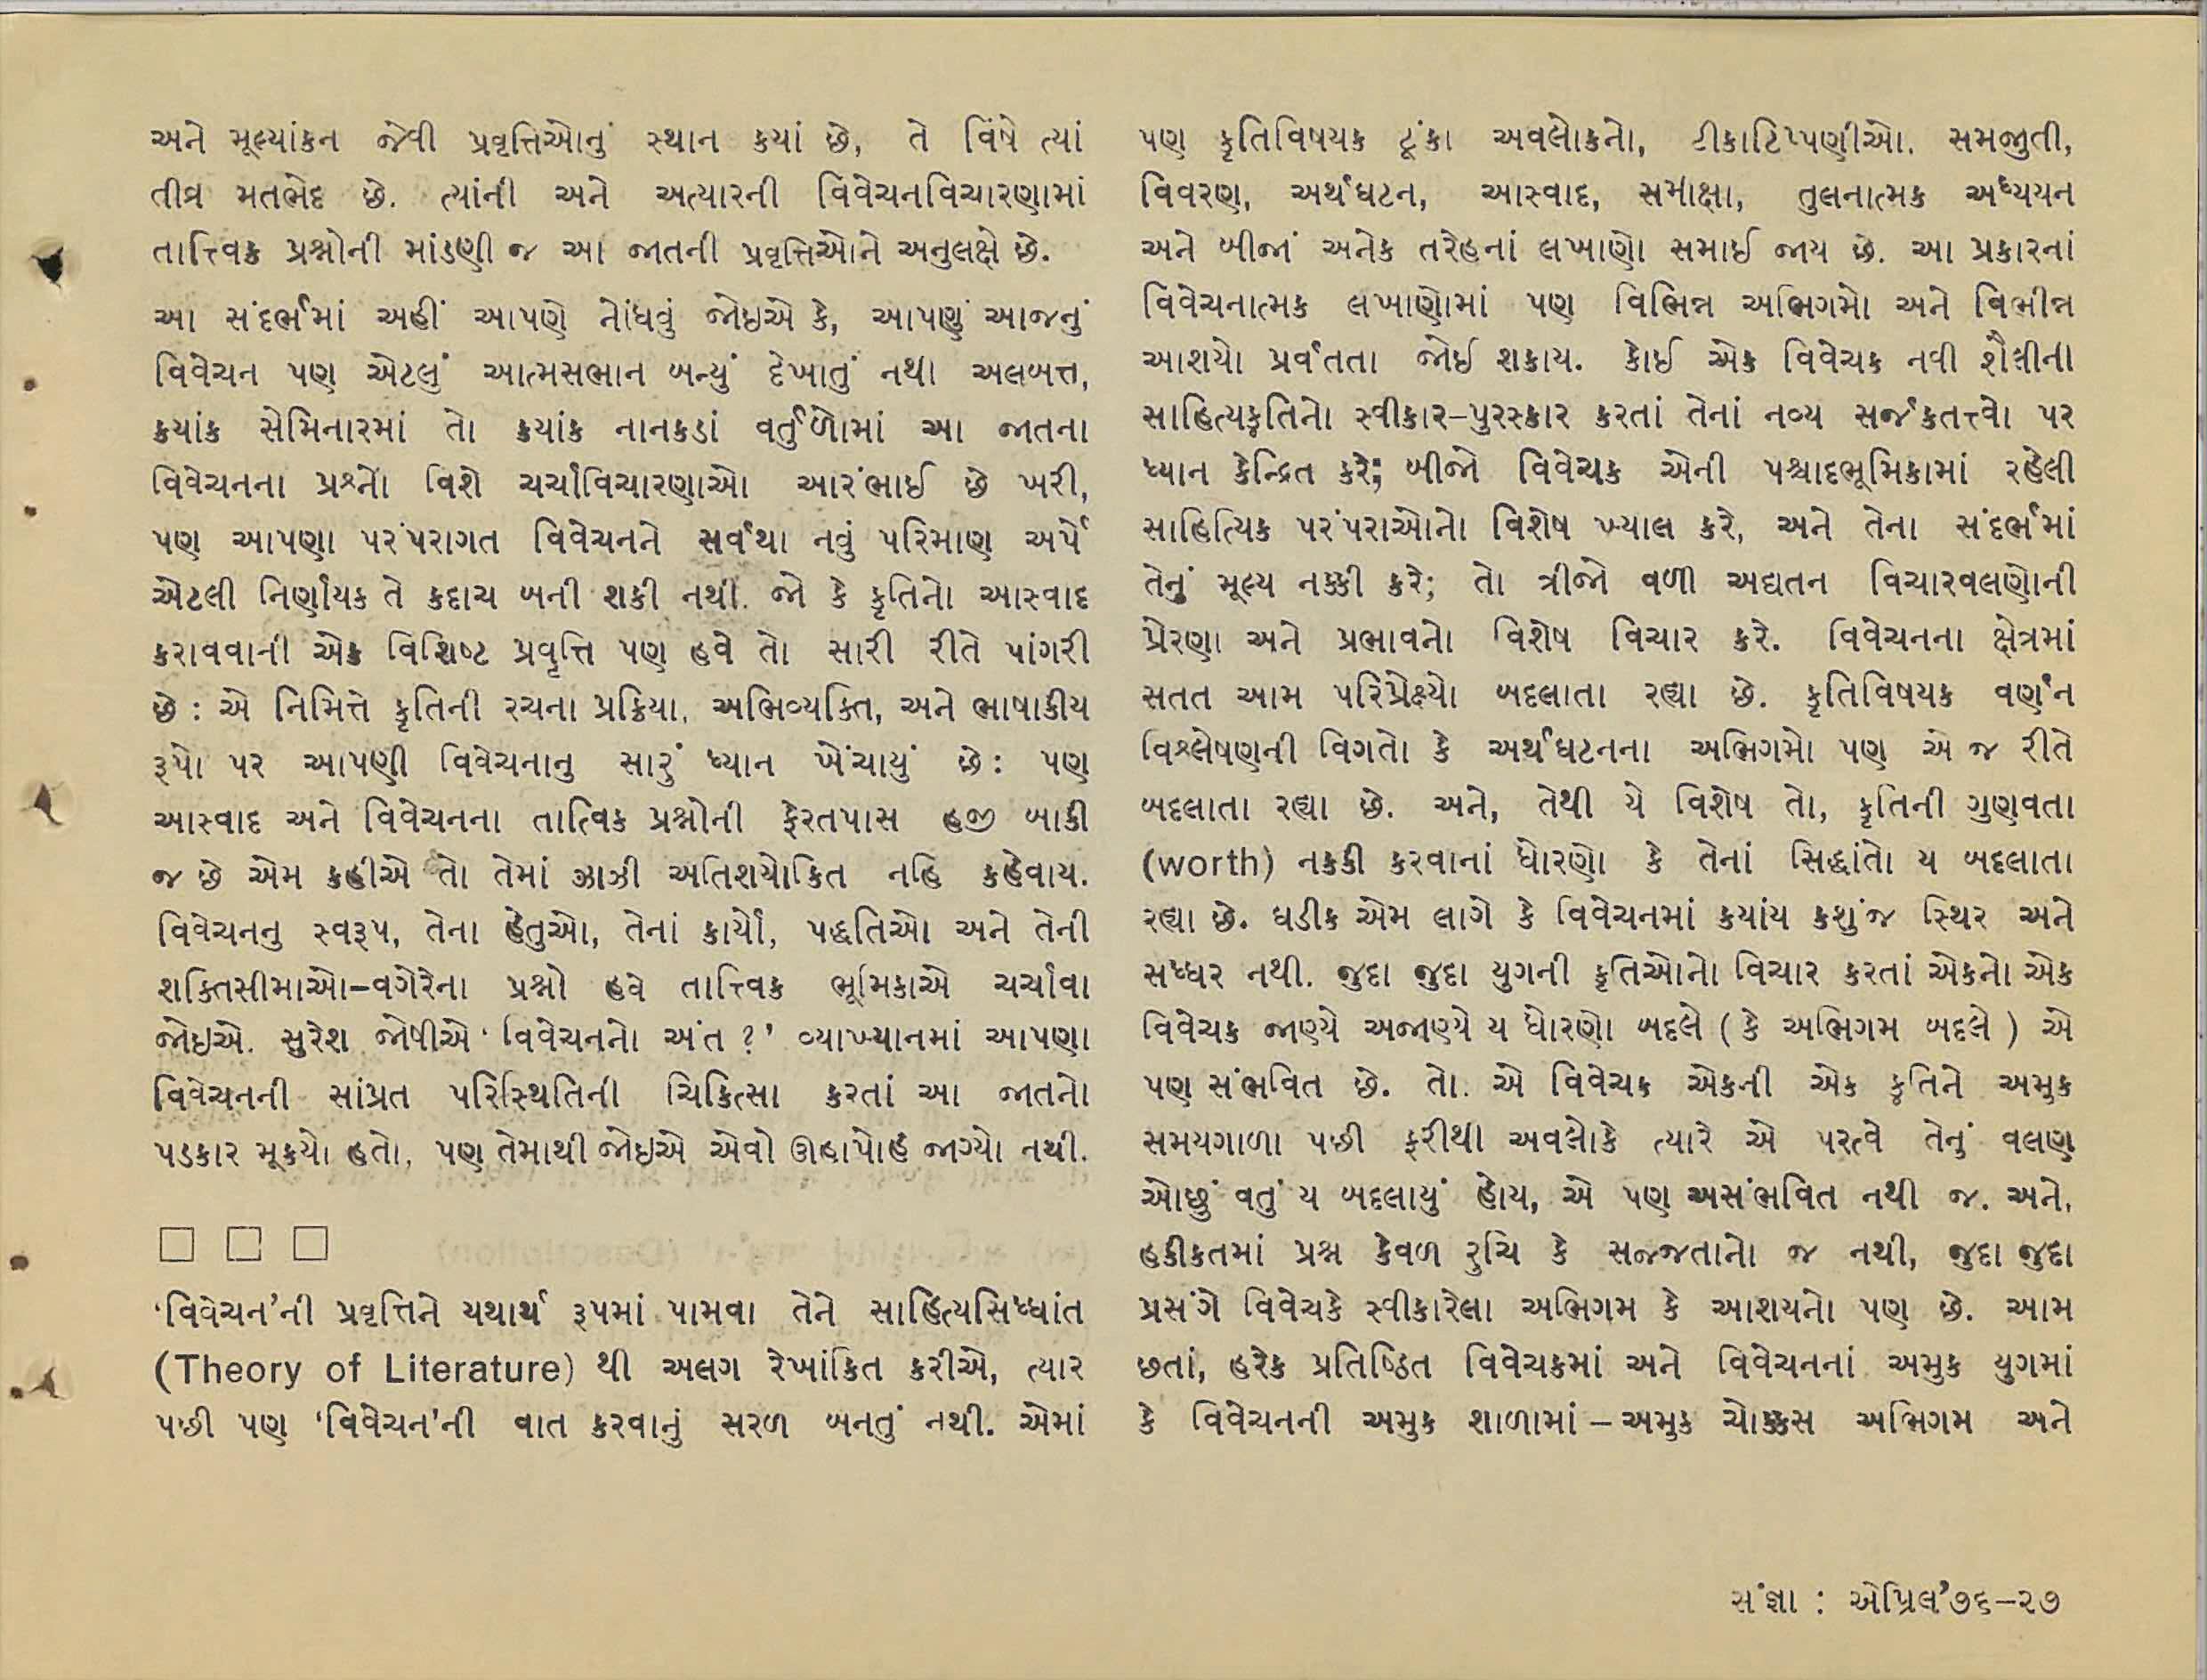 અને મૂલ્યાંકન જેવી પ્રવૃત્તિઓનું સ્થાન કયાં છે, તે વિષે ત્યાં
તીવ્ર મતભેદ છે. ત્યાંની અને અત્યારની વિવેચનવિચારણામાં
તાત્ત્વિક પ્રશ્નોની માંડણી જ આ જાતની પ્રવૃત્તિઓને અનુલક્ષે છે.
આ સંદર્ભમાં અહીં આપણે નોંધવું જોઇએ કે, આપણું આજનું
વિવેચન પણ એટલું આત્મસભાન બન્યું દેખાતું નથી અલબત્ત,
કયાંક સેમિનારમાં તો કયાંક નાનકડાં વર્તુળોમાં આ જાતના
વિવેચનના પ્રશ્નો વિશે ચર્ચાવિચારણાઓ આરંભાઈ છે ખરી,
પણ આપણા પરંપરાગત વિવેચનને સર્વથા નવું પરિમાણ અર્પે
એટલી નિર્ણાયક તે કદાચ બની શકી નથી. જો કે કૃતિનો આસ્વાદ
કરાવવાની એક વિશિષ્ટ પ્રવૃત્તિ પણ હવે તો સારી રીતે પાંગરી
છે : એ નિમિત્તે કૃતિની રચના પ્રક્રિયા, અભિવ્યક્તિ, અને ભાષાકીય
રૂપો પર આપણી વિવેચનાનુ સારું ધ્યાન ખેંચાયું છે : પણ
આસ્વાદ અને વિવેચનના તાત્વિક પ્રશ્નોની ફેરતપાસ હજી બાકી
જ છે એમ કહીએ તો તેમાં ઝાઝી અતિશયોકિત નહિ કહેવાય.
વિવેચનનુ સ્વરૂપ, તેના હેતુઓ, તેનાં કાર્યો, પદ્ધતિઓ અને તેની
શક્તિસીમાઓ–વગેરેના પ્રશ્નો હવે તાત્ત્વિક ભૂમિકાએ ચર્ચાવા
જોઇએ. સુરેશ જોષીએ ‘વિવેચનનો અંત ?’ વ્યાખ્યાનમાં આપણા
વિવેચનની સાંપ્રત પરિસ્થિતિની ચિકિત્સા કરતાં આ જાતનો
પડકાર મૂકયો હતો, પણ તેમાથી જોઇએ એવો ઊહાપોહ જાગ્યો નથી.
□ □ □
‘વિવેચન’ની પ્રવૃત્તિને યથાર્થ રૂપમાં પામવા તેને સાહિત્યસિધ્ધાંત
(Theory of Literature) થી અલગ રેખાંકિત કરીએ, ત્યાર
પછી પણ ‘વિવેચન’ની વાત કરવાનું સરળ બનતું નથી. એમાં
પણ કૃતિવિષયક ટૂંકા અવલોકનો, ટીકાટિપ્પણીઓ, સમજુતી,
વિવરણ, અર્થઘટન, આસ્વાદ, સમીક્ષા, તુલનાત્મક અધ્યયન
અને બીજાં અનેક તરેહનાં લખાણો સમાઈ જાય છે. આ પ્રકારનાં
વિવેચનાત્મક લખાણોમાં પણ વિભિન્ન અભિગમો અને વિભીન્ન
આશયો પ્રર્વતતા જોઈ શકાય. કોઈ એક વિવેચક નવી શૈલીની
સાહિત્યકૃતિનો સ્વીકાર–પુરસ્કાર કરતાં તેનાં નવ્ય સર્જકતત્ત્વો પર
ધ્યાન કેન્દ્રિત કરે; બીજો વિવેચક એની પશ્ચાદભૂમિકામાં રહેલી
સાહિત્યિક પરંપરાઓનો વિશેષ ખ્યાલ કરે, અને તેના સંદર્ભમાં
તેનું મૂલ્ય નક્કી કરે; તો ત્રીજો વળી અદ્યતન વિચારવલણોની
પ્રેરણા અને પ્રભાવનો વિશેષ વિચાર કરે. વિવેચનના ક્ષેત્રમાં
સતત આમ પરિપ્રેક્ષ્યો બદલાતા રહ્યા છે. કૃતિવિષયક વર્ણન
વિશ્લેષણની વિગતો કે અર્થઘટનના અભિગમો પણ એ જ રીતે
બદલાતા રહ્યા છે. અને, તેથી યે વિશેષ તો, કૃતિની ગુણવતા
(worth) નકકી કરવાનાં ધોરણો કે તેનાં સિદ્ધાંતો ય બદલાતા
રહ્યા છે. ઘડીક એમ લાગે કે વિવેચનમાં કયાંય કશુંજ સ્થિર અને
સધ્ધર નથી. જુદા જુદા યુગની કૃતિઓનો વિચાર કરતાં એકનો એક
વિવેચક જાણ્યે અજાણ્યે ય ધોરણો બદલે ( કે અભિગમ બદલે ) એ
પણ સંભવિત છે. તો. એ વિવેચક એકની એક કૃતિને અમુક
સમયગાળા પછી ફરીથી અવલોકે ત્યારે એ પરત્વે તેનું વલણ
ઓછું વતું ય બદલાયું હોય, એ પણ અસંભવિત નથી જ. અને,
હકીકતમાં પ્રશ્ન કેવળ રુચિ કે સજ્જતાનો જ નથી, જુદા જુદા
પ્રસંગે વિવેચકે સ્વીકારેલા અભિગમ કે આશયનો પણ છે. આમ
છતાં, હરેક પ્રતિષ્ઠિત વિવેચકમાં અને વિવેચનનાં અમુક યુગમાં
કે વિવેચનની અમુક શાળામાં – અમુક ચોક્કસ અભિગમ અને
સંજ્ઞા : એપ્રિલ’૭૬–૨૭